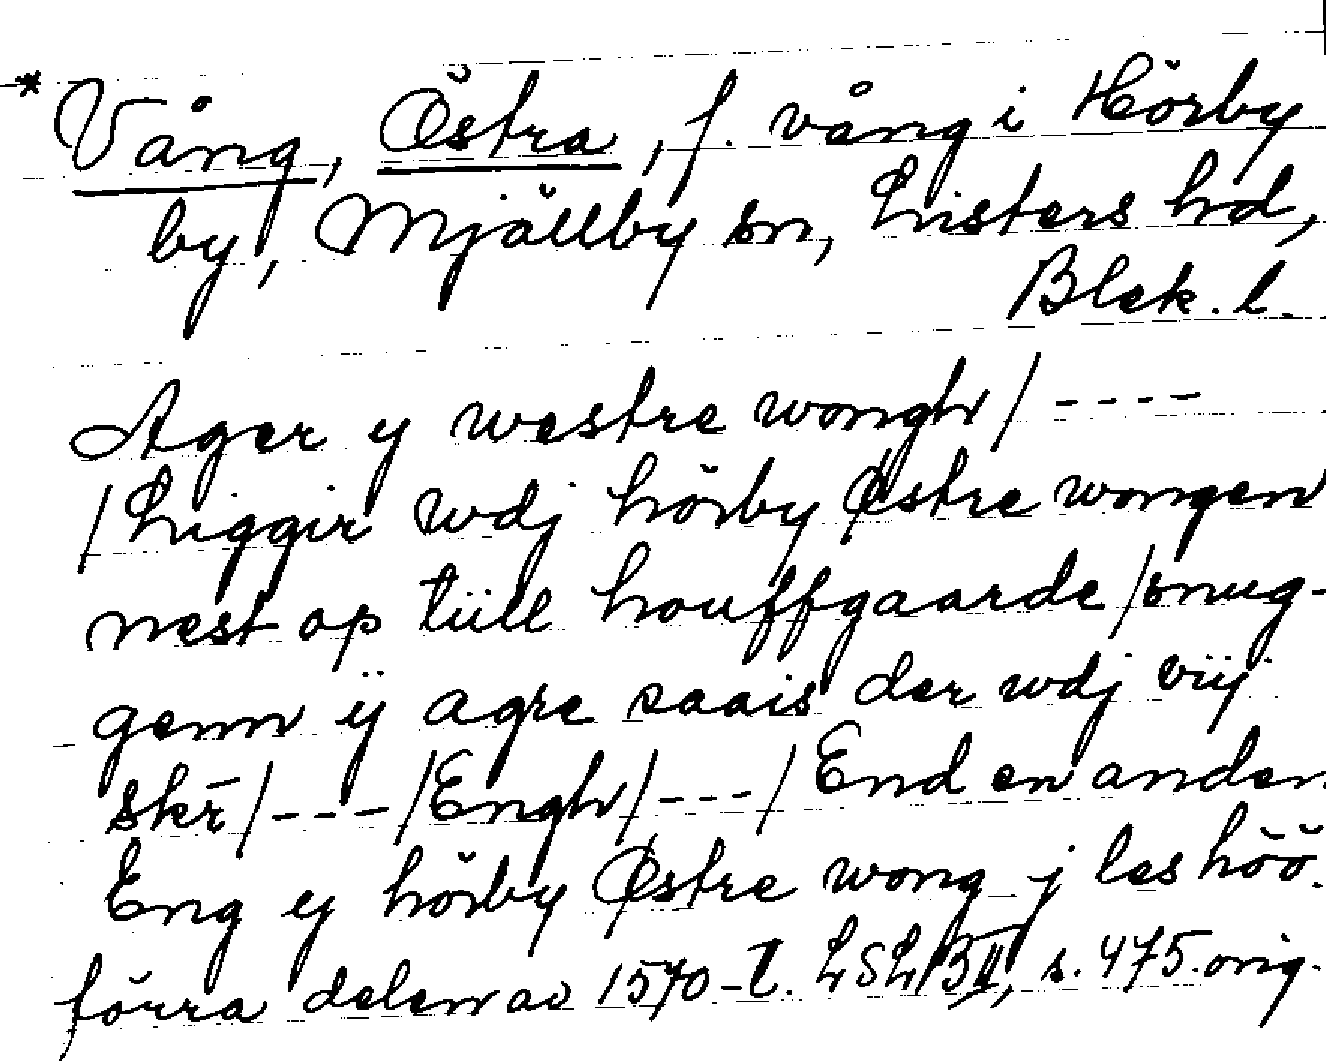 * Vång, Östra, f. vång i Hörby
by, Mjällby sn, Listers hd,
Blek. l.
Ager y westre wongh / ----
/ Liggir wdj hörby Østre wongen
nest op tiill houffgaarde / snug-
genn ÿ agre saais der wdj viij
skr̄ / --- / Engh / --- / End en anden
Eng y hörby Østre wong j les höö.
förra delen av 1570-t. LSLB II, s. 475. orig.